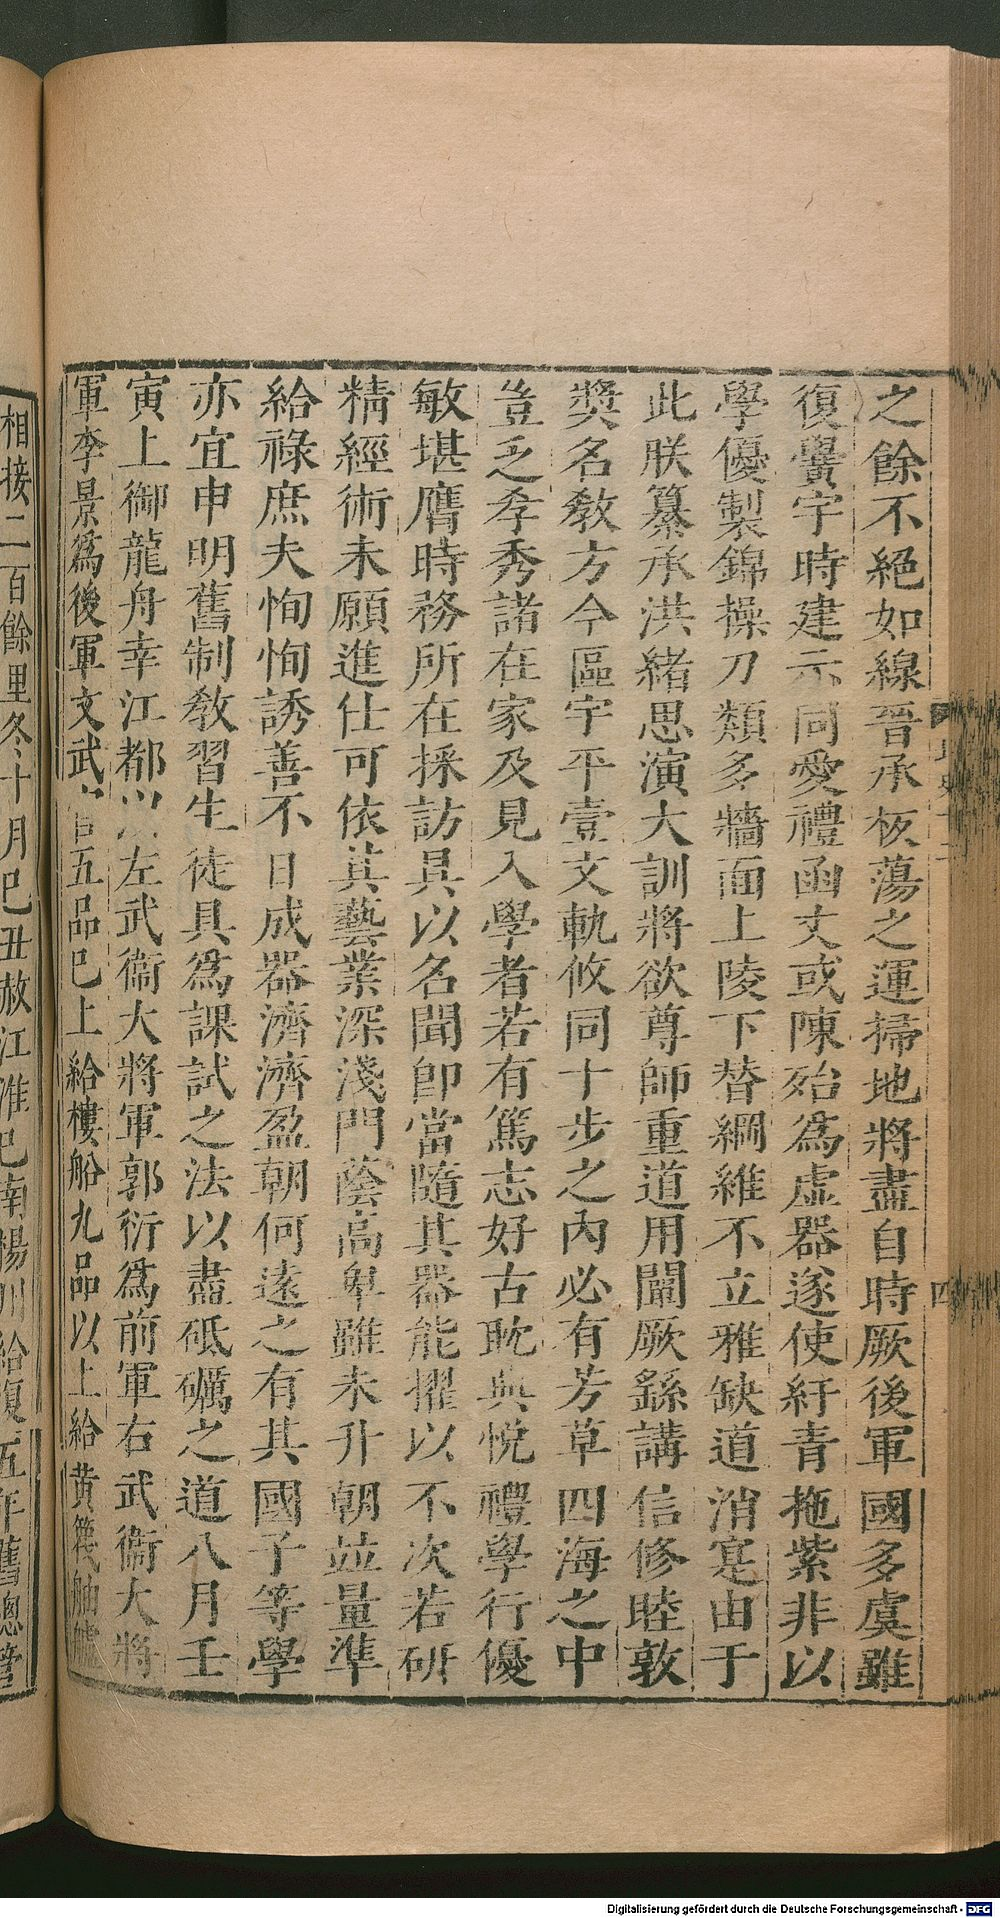 之餘不絕如線晉承板蕩之運掃地將盡自時厥後軍國多虞雖
復黌宇時建示同愛禮函丈或陳殆爲虛器遂使紆青拖紫非以
學優製錦操刀類多牆面上陵下替綱維不立雅缺道消寔由于
此朕纂承洪緒思演大訓將欲尊師重道用闡厥繇講信修睦敦
獎名敎方今區宇平壹文軌攸同十步之內必有芳草四海之中
豈乏孝秀諸在家及見入學者若有篤志好古耽典悅禮學行優
敏堪膺時務所在採訪具以名聞即當隨其器能擢以不次若硏
精經術未願進仕可依其藝業深淺門蔭高卑雖未升朝竝量準
給祿庶夫恂恂誘善不日成器濟濟盈朝何遠之有其國子等學
亦宜申明舊制敎習生徒具爲課試之法以盡砥礪之道八月壬
寅上御龍舟幸江都以左武衞大將軍郭衍爲前軍右武衞大將
軍李景爲後軍文武官五品已上給樓船九品以上給黄篾舳艫
相接二百餘里冬十月己丑赦江淮已南揚州給復五年舊總管
四
Digitalisierung gefördert durch die Deutsche Forschungsgemeinschaft - DFG